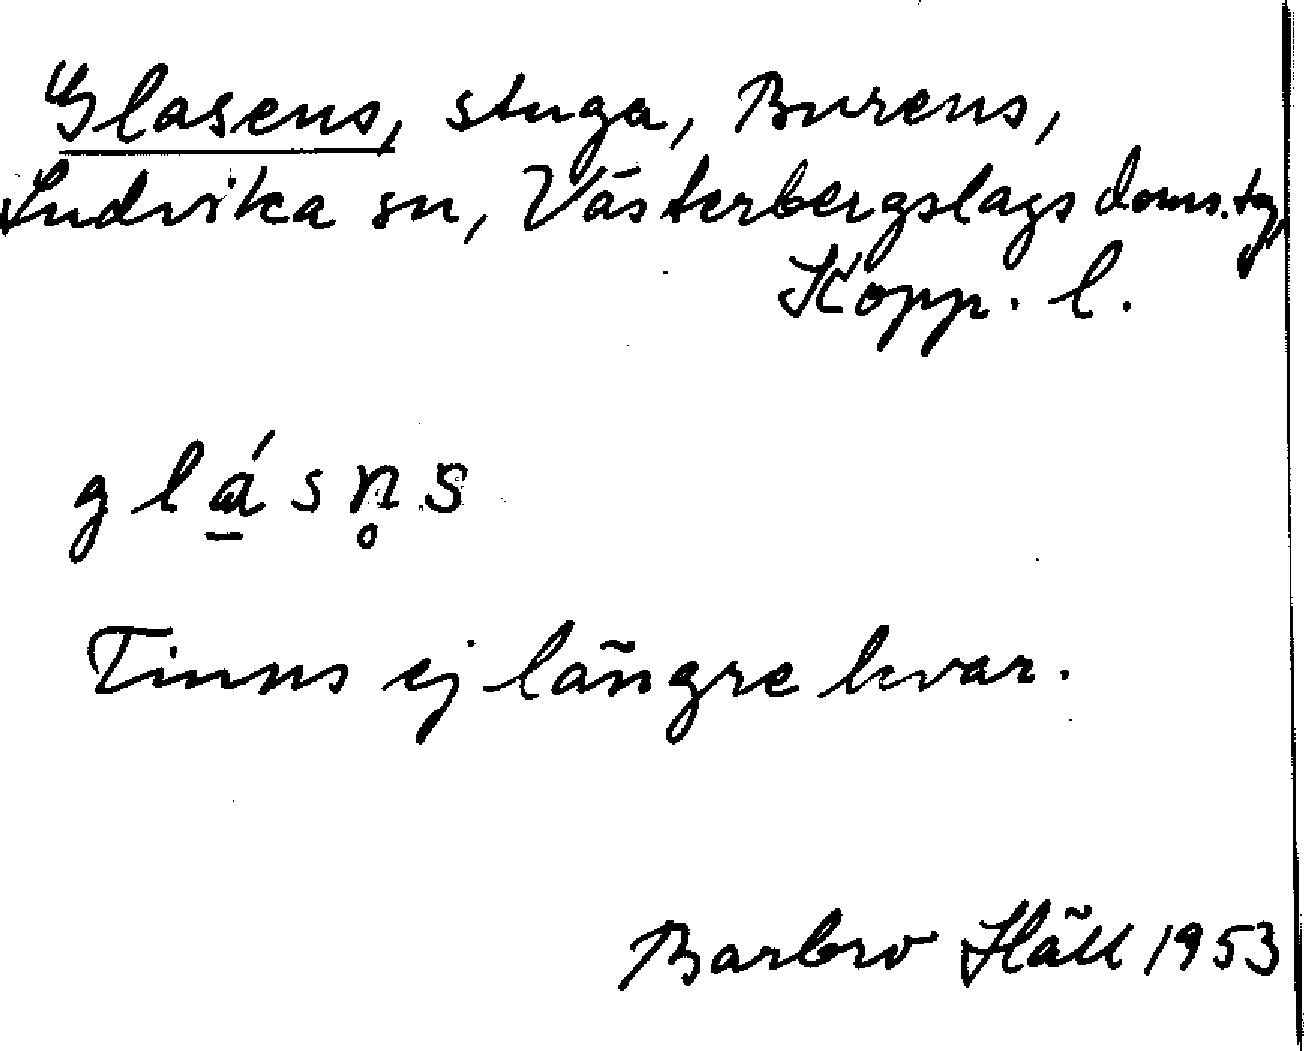 Glasens, stuga, Burens,
Ludvika sn, Västerbergslags doms.tg,
Kopp. l.
glá̱sn̥s
Finns ej längre kvar.
Barbro Häll 1953